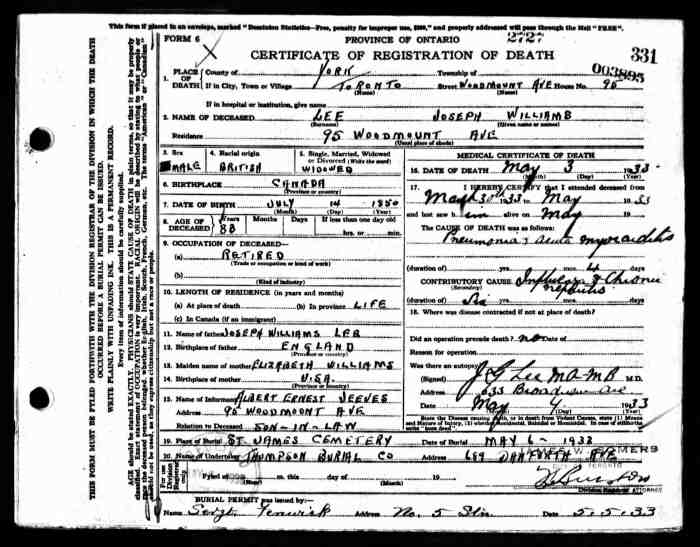 This form if placed in an envelope, marked "Dominion Statistics—Free, penalty for improper use, $300," and properly addressed will pass through the Mail "FREE".
FORM 6
PROVINCE OF ONTARIO
2727
CERTIFICATE OF REGISTRATION OF DEATH
331
003895
1. PLACE OF DEATH County of YORK Township of
If in City, Town or Village TORONTO (Name) Street WOODMOUNT AVE House No. 95
If in hospital or institution, give name
2. NAME OF DECEASED LEE (Surname) JOSEPH WILLIAMS
Residence 95 WOODMOUNT AVE
(Usual place of abode)
3. Sex MALE
4. Racial origin BRITISH
5. Single, Married, Widowed or Divorced (Write the word) WIDOWED
6. BIRTHPLACE CANADA
(Province or country)
7. DATE OF BIRTH JULY (Month) 14 (Day) 1850 (Year)
8. AGE OF DECEASED Years Months Days If less than one day old
hrs. or min.
9. OCCUPATION OF DECEASED—
(a) RETIRED
(Trade or occupation or kind of work)
(b)
(Kind of industry)
10. LENGTH OF RESIDENCE (in years and months)
(a) At place of death (b) In province LIFE
(c) In Canada (if an immigrant)
11. Name of father JOSEPH WILLIAMS LEE
12. Birthplace of father ENGLAND
(Province or country)
13. Maiden name of mother ELIZABETH WILLIAMS
14. Birthplace of mother U.S.A.
(Province or country)
15. Name of Informant ALBERT ERNEST JEEVES
Address 95 WOODMOUNT AVE
Relation to Deceased SON-IN-LAW
19. Place of Burial ST JAMES CEMETERY Date of Burial MAY 6 - 1933
20. Name of Undertaker THOMPSON BURIAL CO Address 659 DANFORTH AVE
For use of Division Registrar only
Filed at this day of (Month) 19
Division Registrar
BURIAL PERMIT was issued by:
Name Sergt. Fenwick Address No. 5 Stn. Date 5.5.33
MEDICAL CERTIFICATE OF DEATH
16. DATE OF DEATH May (Month) 3 (Day) 1933 (Year)
17. I HEREBY CERTIFY that I attended deceased from
1933 to May 1933
and last saw him alive on May 19
The CAUSE OF DEATH was as follows:
Pneumonia & acute myocarditis
(duration of) yrs. mos. 4 days
CONTRIBUTORY CAUSE (Secondary) Influenza & Chronic nephritis
(duration of) yrs. mos. days
18. Where was disease contracted if not at place of death?
Did an operation precede death? no Date of
Reason for operation
Was there an autopsy
(Signed) J G Lee M.A. M.B. M.D.
Address 633 Broadview Ave
Date May (Month) 4 (Day) 1933
State the Disease causing Death, or in death from Violent Causes, state (1) Means and Nature of Injury, (2) whether Accidental, Suicidal or Homicidal.
THIS FORM MUST BE FILED FORTHWITH WITH THE DIVISION REGISTRAR OF THE DIVISION IN WHICH THE DEATH
OCCURRED BEFORE A BURIAL PERMIT CAN BE ISSUED.
WRITE PLAINLY WITH UNFADING INK. THIS IS A PERMANENT RECORD.
Every item of information should be carefully supplied.
AGE should be stated EXACTLY. PHYSICIANS should STATE CAUSE OF DEATH in plain terms, so that it may be properly
classified. Exact statement of OCCUPATION is very important. RACIAL ORIGIN will be described by stating to what people or